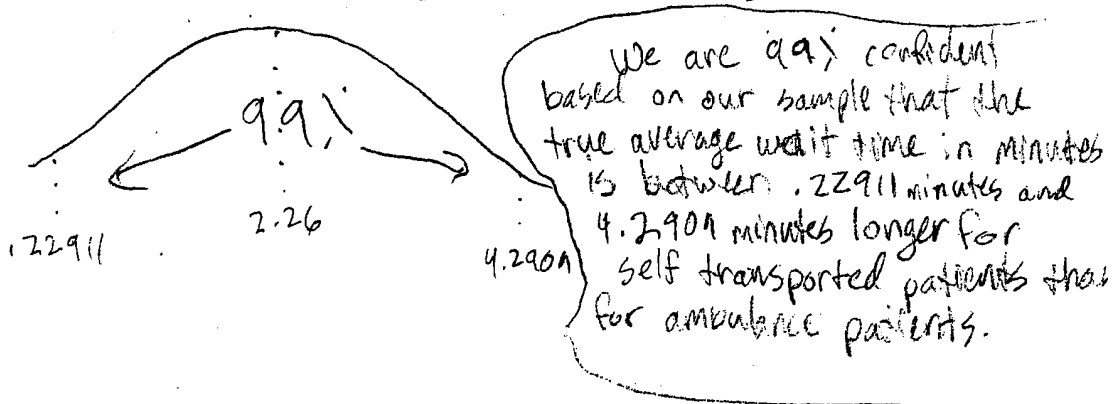 99%
.22911
2.26
4.2909
We are 99% confident
based on our sample that the
true average wait time in minutes
is between .22911 minutes and
4.2909 minutes longer for
self transported patients than
for ambulance patients.